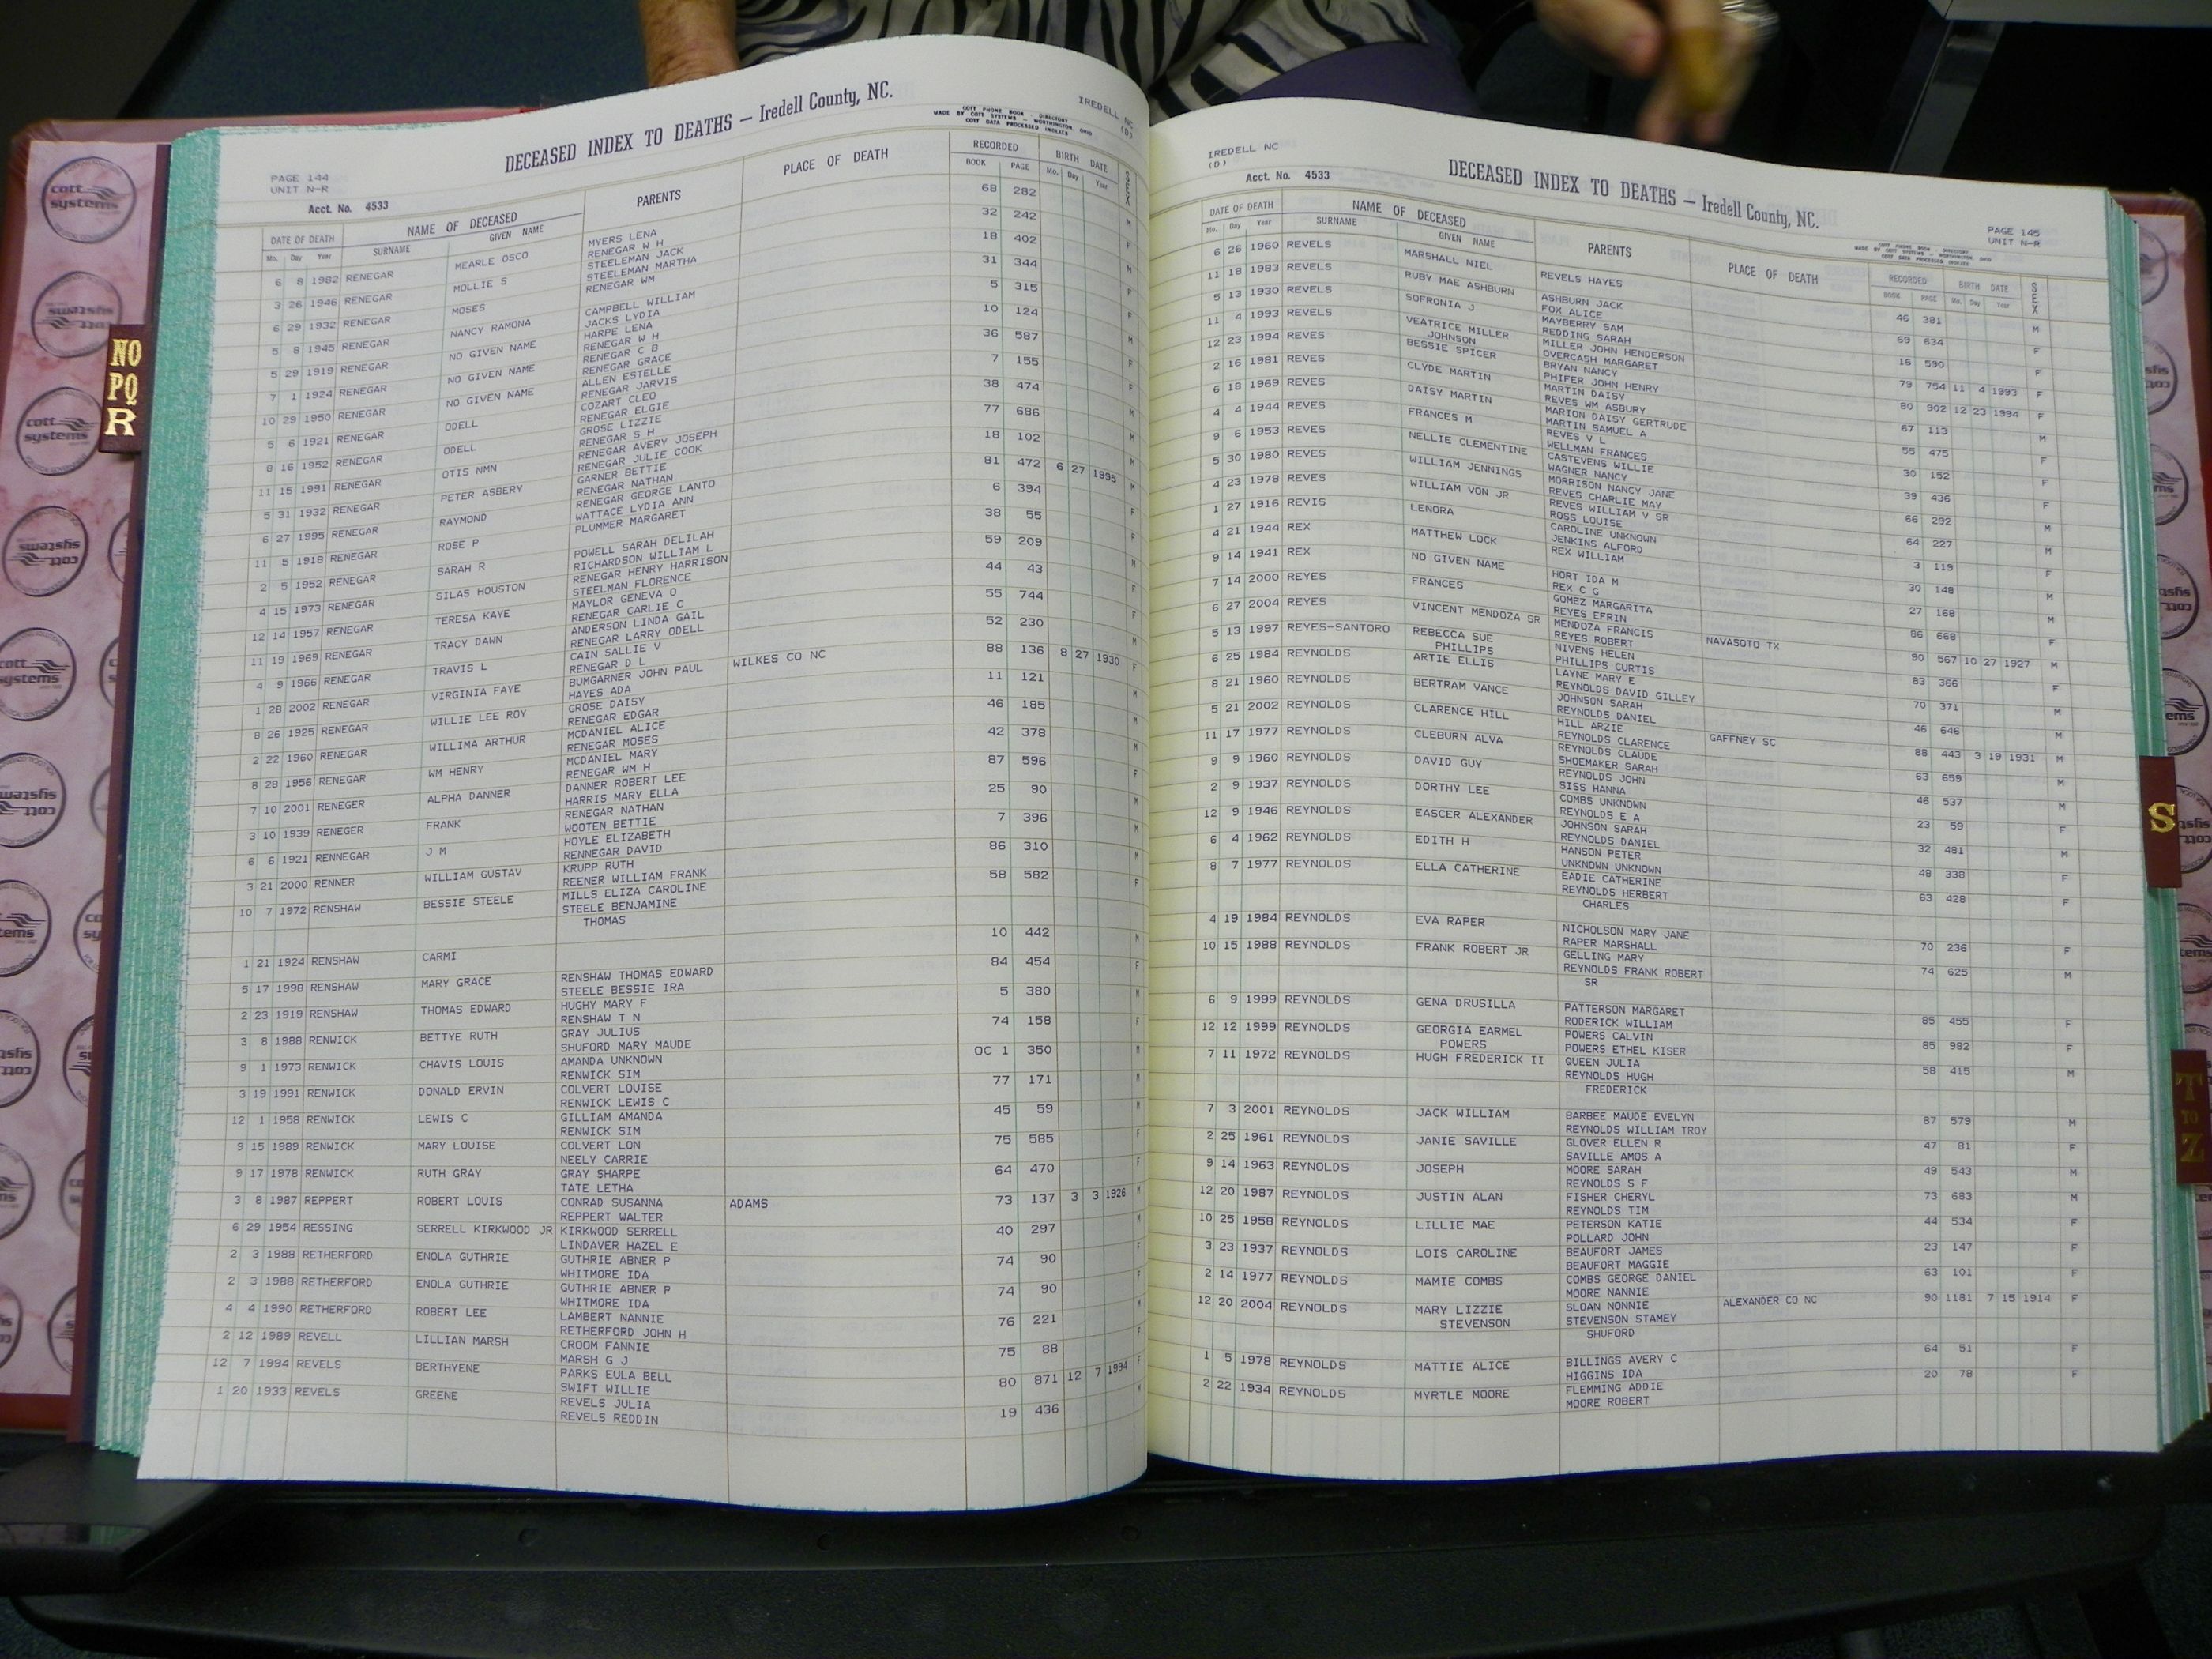 NO
PQ
R
PAGE 144
UNIT N-R
DECEASED INDEX TO DEATHS — Iredell County, NC.
COTT PHONE BOOK - DIRECTORY
MADE BY COTT SYSTEMS - WORTHINGTON, OHIO
COTT DATA PROCESSED INDEXES
IREDELL NC
(D)
Acct. No. 4533
DATE OF DEATH NAME OF DECEASED PARENTS PLACE OF DEATH RECORDED BIRTH DATE SEX
Mo. Day Year SURNAME GIVEN NAME BOOK PAGE Mo. Day Year
6 8 1982 RENEGAR MEARLE OSCO MYERS LENA 68 282 M
RENEGAR W H
3 26 1946 RENEGAR MOLLIE S STEELEMAN JACK 32 242 F
STEELEMAN MARTHA
6 29 1932 RENEGAR MOSES RENEGAR WM 18 402 M
5 8 1945 RENEGAR NANCY RAMONA CAMPBELL WILLIAM 31 344 F
JACKS LYDIA
5 29 1919 RENEGAR NO GIVEN NAME HARPE LENA 5 315 M
RENEGAR W H
7 1 1924 RENEGAR NO GIVEN NAME RENEGAR C B 10 124 F
RENEGAR GRACE
10 29 1950 RENEGAR NO GIVEN NAME ALLEN ESTELLE 36 587 F
RENEGAR JARVIS
5 6 1921 RENEGAR ODELL COZART CLEO 7 155 M
RENEGAR ELGIE
8 16 1952 RENEGAR ODELL GROSE LIZZIE 38 474 M
RENEGAR S H
11 15 1991 RENEGAR OTIS NMN RENEGAR AVERY JOSEPH 77 686 M
RENEGAR JULIE COOK
5 31 1932 RENEGAR PETER ASBERY GARNER BETTIE 18 102 M
RENEGAR NATHAN
6 27 1995 RENEGAR RAYMOND RENEGAR GEORGE LANTO 81 472 6 27 1995 M
WATTACE LYDIA ANN
11 5 1918 RENEGAR ROSE P PLUMMER MARGARET 6 394 F
2 5 1952 RENEGAR SARAH R POWELL SARAH DELILAH 38 55 F
RICHARDSON WILLIAM L
4 15 1973 RENEGAR SILAS HOUSTON RENEGAR HENRY HARRISON 59 209 M
STEELMAN FLORENCE
12 14 1957 RENEGAR TERESA KAYE MAYLOR GENEVA O 44 43 F
RENEGAR CARLIE C
11 19 1969 RENEGAR TRACY DAWN ANDERSON LINDA GAIL 55 744 F
RENEGAR LARRY ODELL
4 9 1966 RENEGAR TRAVIS L CAIN SALLIE V 52 230 M
RENEGAR D L
1 28 2002 RENEGAR VIRGINIA FAYE BUMGARNER JOHN PAUL WILKES CO NC 88 136 8 27 1930 F
HAYES ADA
8 26 1925 RENEGAR WILLIE LEE ROY GROSE DAISY 11 121 M
RENEGAR EDGAR
2 22 1960 RENEGAR WILLIMA ARTHUR MCDANIEL ALICE 46 185 M
RENEGAR MOSES
8 28 1956 RENEGAR WM HENRY MCDANIEL MARY 42 378 M
RENEGAR WM H
7 10 2001 RENEGER ALPHA DANNER DANNER ROBERT LEE 87 596 F
HARRIS MARY ELLA
3 10 1939 RENEGER FRANK RENEGAR NATHAN 25 90 M
WOOTEN BETTIE
6 6 1921 RENNEGAR J M HOYLE ELIZABETH 7 396 M
RENNEGAR DAVID
3 21 2000 RENNER WILLIAM GUSTAV KRUPP RUTH 86 310 M
REENER WILLIAM FRANK
10 7 1972 RENSHAW BESSIE STEELE MILLS ELIZA CAROLINE 58 582 F
STEELE BENJAMINE
THOMAS
1 21 1924 RENSHAW CARMI 10 442 M
5 17 1998 RENSHAW MARY GRACE RENSHAW THOMAS EDWARD 84 454 F
STEELE BESSIE IRA
2 23 1919 RENSHAW THOMAS EDWARD HUGHY MARY F 5 380 M
RENSHAW T N
3 8 1988 RENWICK BETTYE RUTH GRAY JULIUS 74 158 F
SHUFORD MARY MAUDE
9 1 1973 RENWICK CHAVIS LOUIS AMANDA UNKNOWN OC 1 350 M
RENWICK SIM
3 19 1991 RENWICK DONALD ERVIN COLVERT LOUISE 77 171 M
RENWICK LEWIS C
12 1 1958 RENWICK LEWIS C GILLIAM AMANDA 45 59 M
RENWICK SIM
9 15 1989 RENWICK MARY LOUISE COLVERT LON 75 585 F
NEELY CARRIE
9 17 1978 RENWICK RUTH GRAY GRAY SHARPE 64 470 F
TATE LETHA
3 8 1987 REPPERT ROBERT LOUIS CONRAD SUSANNA ADAMS 73 137 3 3 1926 M
REPPERT WALTER
6 29 1954 RESSING SERRELL KIRKWOOD JR KIRKWOOD SERRELL 40 297 M
LINDAVER HAZEL E
2 3 1988 RETHERFORD ENOLA GUTHRIE GUTHRIE ABNER P 74 90 F
WHITMORE IDA
2 3 1988 RETHERFORD ENOLA GUTHRIE GUTHRIE ABNER P 74 90 F
WHITMORE IDA
4 4 1990 RETHERFORD ROBERT LEE LAMBERT NANNIE 76 221 M
RETHERFORD JOHN H
2 12 1989 REVELL LILLIAN MARSH CROOM FANNIE 75 88 F
MARSH G J
12 7 1994 REVELS BERTHYENE PARKS EULA BELL 80 871 12 7 1994 F
SWIFT WILLIE
1 20 1933 REVELS GREENE REVELS JULIA 19 436 M
REVELS REDDIN
IREDELL NC
(D)
Acct. No. 4533
DECEASED INDEX TO DEATHS — Iredell County, NC.
COTT PHONE BOOK - DIRECTORY
MADE BY COTT SYSTEMS - WORTHINGTON, OHIO
COTT DATA PROCESSED INDEXES
PAGE 145
UNIT N-R
DATE OF DEATH NAME OF DECEASED PARENTS PLACE OF DEATH RECORDED BIRTH DATE SEX
Mo. Day Year SURNAME GIVEN NAME BOOK PAGE Mo. Day Year
6 26 1960 REVELS MARSHALL NIEL REVELS HAYES 46 381 M
11 18 1983 REVELS RUBY MAE ASHBURN ASHBURN JACK 69 634 F
FOX ALICE
5 13 1930 REVELS SOFRONIA J MAYBERRY SAM 16 590 F
REDDING SARAH
11 4 1993 REVELS VEATRICE MILLER MILLER JOHN HENDERSON 79 754 11 4 1993 F
JOHNSON OVERCASH MARGARET
12 23 1994 REVES BESSIE SPICER BRYAN NANCY 80 902 12 23 1994 F
PHIFER JOHN HENRY
2 16 1981 REVES CLYDE MARTIN MARTIN DAISY 67 113 M
REVES WM ASBURY
6 18 1969 REVES DAISY MARTIN MARION DAISY GERTRUDE 55 475 F
MARTIN SAMUEL A
4 4 1944 REVES FRANCES M REVES V L 30 152 F
WELLMAN FRANCES
9 6 1953 REVES NELLIE CLEMENTINE CASTEVENS WILLIE 39 436 F
WAGNER NANCY
5 30 1980 REVES WILLIAM JENNINGS MORRISON NANCY JANE 66 292 M
REVES CHARLIE MAY
4 23 1978 REVES WILLIAM VON JR REVES WILLIAM V SR 64 227 M
ROSS LOUISE
1 27 1916 REVIS LENORA CAROLINE UNKNOWN 3 119 F
JENKINS ALFORD
4 21 1944 REX MATTHEW LOCK REX WILLIAM 30 148 M
9 14 1941 REX NO GIVEN NAME HORT IDA M 27 168 M
REX C G
7 14 2000 REYES FRANCES GOMEZ MARGARITA 86 668 F
REYES EFRIN
6 27 2004 REYES VINCENT MENDOZA SR MENDOZA FRANCIS NAVASOTO TX 90 567 10 27 1927 M
REYES ROBERT
5 13 1997 REYES-SANTORO REBECCA SUE NIVENS HELEN 83 366 F
PHILLIPS PHILLIPS CURTIS
6 25 1984 REYNOLDS ARTIE ELLIS LAYNE MARY E 70 371 M
REYNOLDS DAVID GILLEY
8 21 1960 REYNOLDS BERTRAM VANCE JOHNSON SARAH 46 646 M
REYNOLDS DANIEL
5 21 2002 REYNOLDS CLARENCE HILL HILL ARZIE GAFFNEY SC 88 443 3 19 1931 M
REYNOLDS CLARENCE
11 17 1977 REYNOLDS CLEBURN ALVA REYNOLDS CLAUDE 63 659 M
SHOEMAKER SARAH
9 9 1960 REYNOLDS DAVID GUY REYNOLDS JOHN 46 537 M
SISS HANNA
2 9 1937 REYNOLDS DORTHY LEE COMBS UNKNOWN 23 59 F
REYNOLDS E A
12 9 1946 REYNOLDS EASCER ALEXANDER JOHNSON SARAH 32 481 M
REYNOLDS DANIEL
6 4 1962 REYNOLDS EDITH H HANSON PETER 48 338 F
UNKNOWN UNKNOWN
8 7 1977 REYNOLDS ELLA CATHERINE EADIE CATHERINE 63 428 F
REYNOLDS HERBERT
CHARLES
4 19 1984 REYNOLDS EVA RAPER NICHOLSON MARY JANE 70 236 F
RAPER MARSHALL
10 15 1988 REYNOLDS FRANK ROBERT JR GELLING MARY 74 625 M
REYNOLDS FRANK ROBERT
SR
6 9 1999 REYNOLDS GENA DRUSILLA PATTERSON MARGARET 85 455 F
RODERICK WILLIAM
12 12 1999 REYNOLDS GEORGIA EARMEL POWERS CALVIN 85 982 F
POWERS POWERS ETHEL KISER
7 11 1972 REYNOLDS HUGH FREDERICK II QUEEN JULIA 58 415 M
REYNOLDS HUGH
FREDERICK
7 3 2001 REYNOLDS JACK WILLIAM BARBEE MAUDE EVELYN 87 579 M
REYNOLDS WILLIAM TROY
2 25 1961 REYNOLDS JANIE SAVILLE GLOVER ELLEN R 47 81 F
SAVILLE AMOS A
9 14 1963 REYNOLDS JOSEPH MOORE SARAH 49 543 M
REYNOLDS S F
12 20 1987 REYNOLDS JUSTIN ALAN FISHER CHERYL 73 683 M
REYNOLDS TIM
10 25 1958 REYNOLDS LILLIE MAE PETERSON KATIE 44 534 F
POLLARD JOHN
3 23 1937 REYNOLDS LOIS CAROLINE BEAUFORT JAMES 23 147 F
BEAUFORT MAGGIE
2 14 1977 REYNOLDS MAMIE COMBS COMBS GEORGE DANIEL 63 101 F
MOORE NANNIE
12 20 2004 REYNOLDS MARY LIZZIE SLOAN NONNIE ALEXANDER CO NC 90 1181 7 15 1914 F
STEVENSON STEVENSON STAMEY
SHUFORD
1 5 1978 REYNOLDS MATTIE ALICE BILLINGS AVERY C 64 51 F
HIGGINS IDA
2 22 1934 REYNOLDS MYRTLE MOORE FLEMMING ADDIE 20 78 F
MOORE ROBERT
S
T
TO
Z
cott
systems